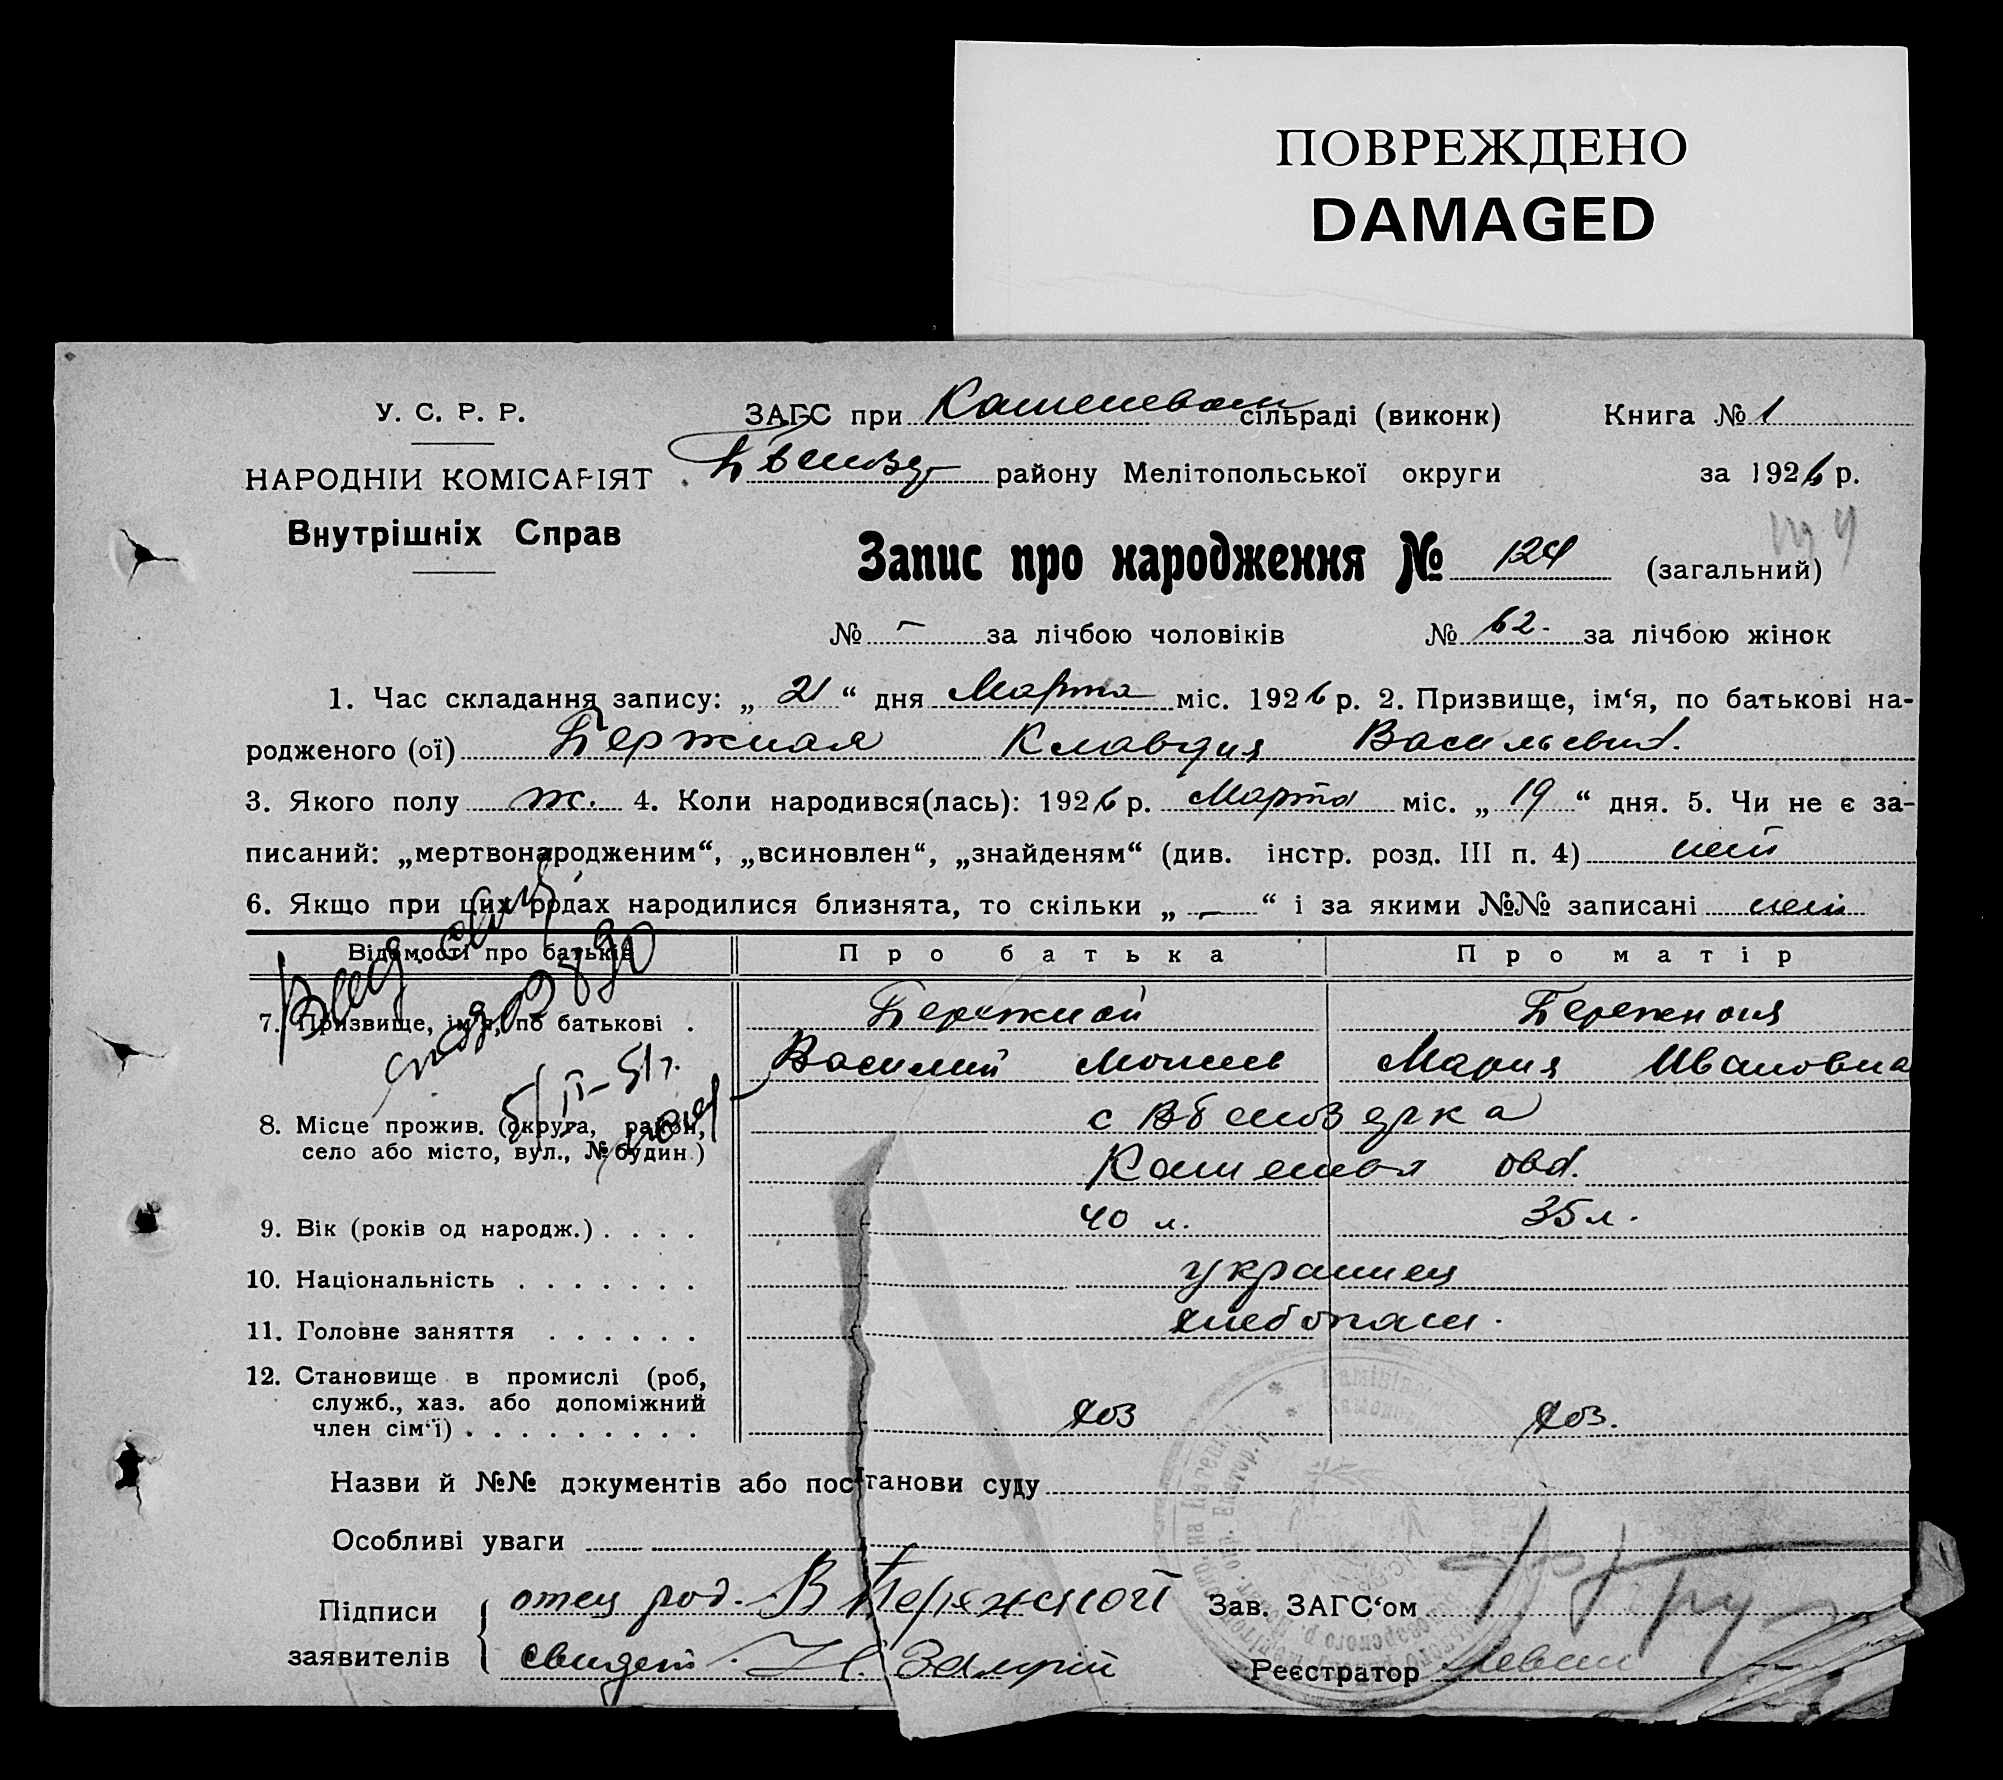 ПОВРЕЖДЕНО
DAMAGED
У. С. Р. Р.
НАРОДНІЙ КОМІСАРІЯТ
Внутрішніх Справ
ЗАГС при сільраді (виконк) Книга № 1
району Мелітопольської округи за 1926 р.
Запис про народження № 124 (загальний)
№ - за лічбою чоловіків № 62 - за лічбою жінок
1. Час складання запису: „ 21 “ дня Марта міс. 1926 р. 2. Призвище, ім‘я, по батькові на-
родженого (ої) Бержная Клавдия Васильевн.
3. Якого полу ж. 4. Коли народився(лась): 1926 р. Марта міс. „ 19 “ дня. 5. Чи не є за-
писаний: „мертвонародженим“, „всиновлен“, „знайденям“ (див. інстр. розд. III п. 4) нет
6. Якщо при цих родах народилися близнята, то скільки „ — “ і за якими №№ записані нет
Відомості про батьків Про батька Про матір
7. Призвище, ім‘я, по батькові . Бережной Бережная
Василий Моисев Мария Ивановна
8. Місце прожив. (округа, район,
село або місто, вул., № будин.)
9. Вік (років од народж.) . . . . 40 л. 35 л.
10. Національність . . . . . . . украинец
11. Головне заняття . . . . . . хлебопаш.
12. Становище в промислі (роб,
служб., хаз. або допоміжний
член сім‘ї) . . . . . . . . . хоз хоз.
Назви й №№ документів або постанови суду
Особливі уваги
Підписи заявителів отец род. В Бережной Зав. ЗАГС‘ом
свидет. Реєстратор